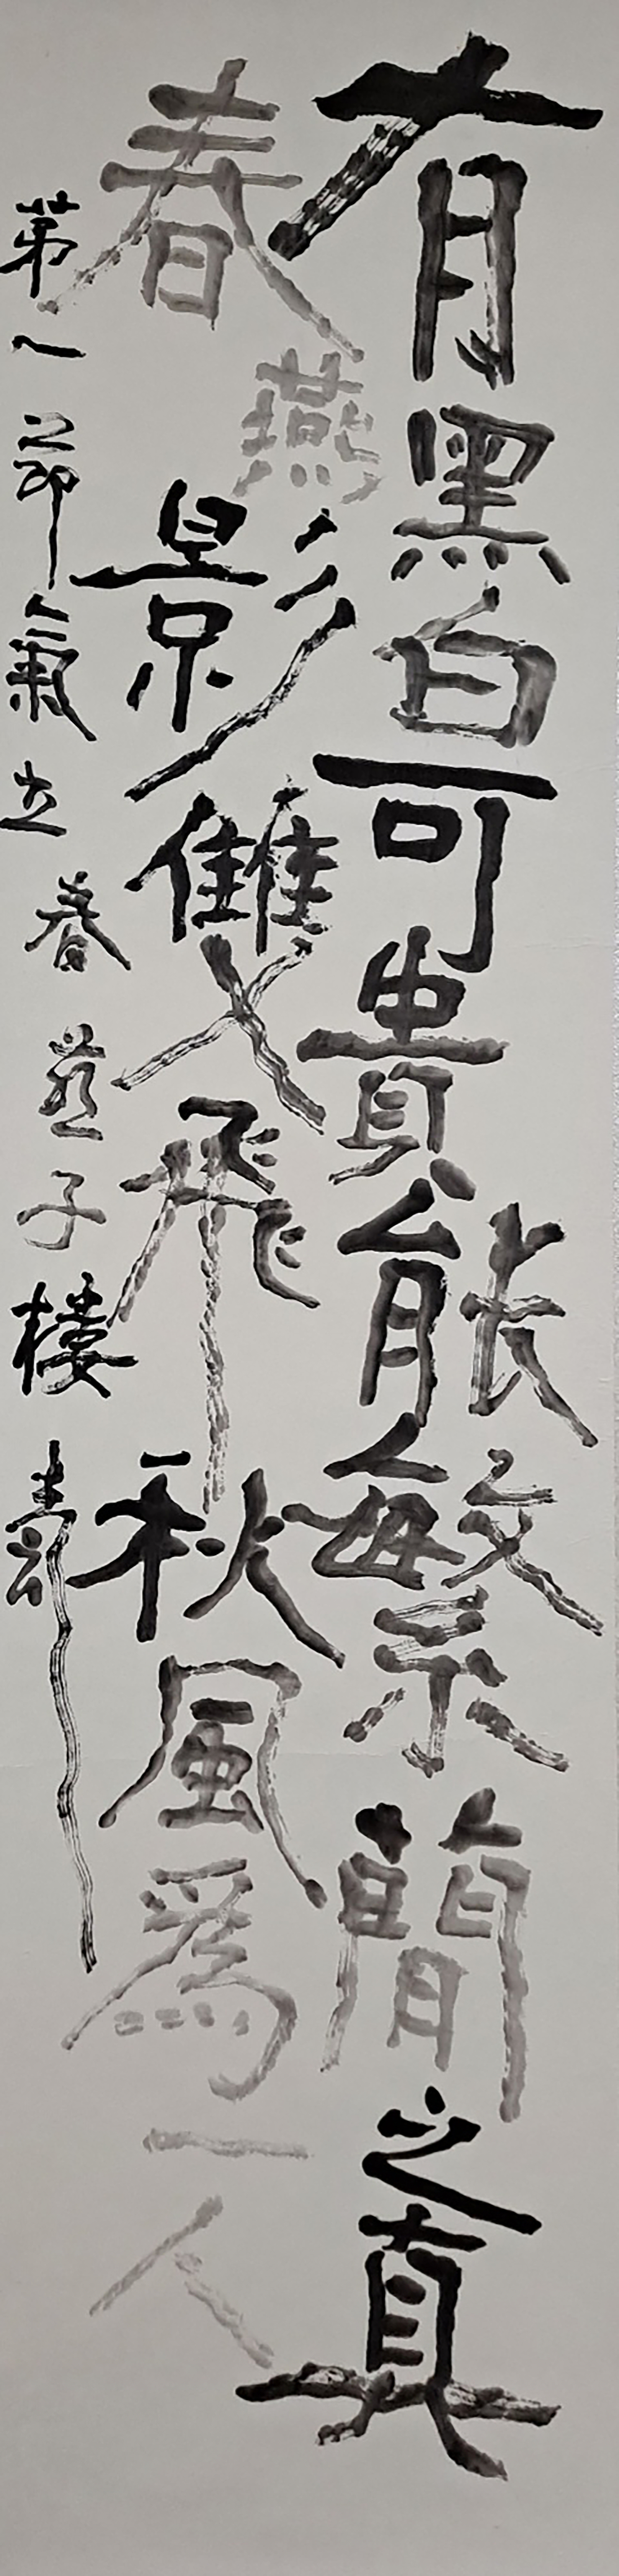 有黑白可貴能繁簡之真
春燕影雙飛秋風為一人
第一節氣立春燕子樓